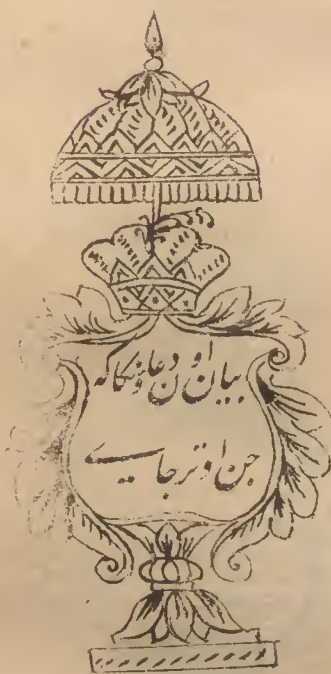 بیان اون دعاؤنکا کہ
جن اوتر جاے